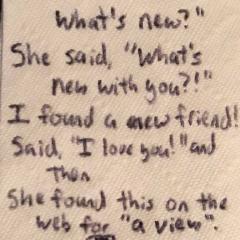 what's new?"
She said, "What's
new with you?!"
I found a new friend!
Said, "I love you!" and
Then
She found this on the
web for "a view".